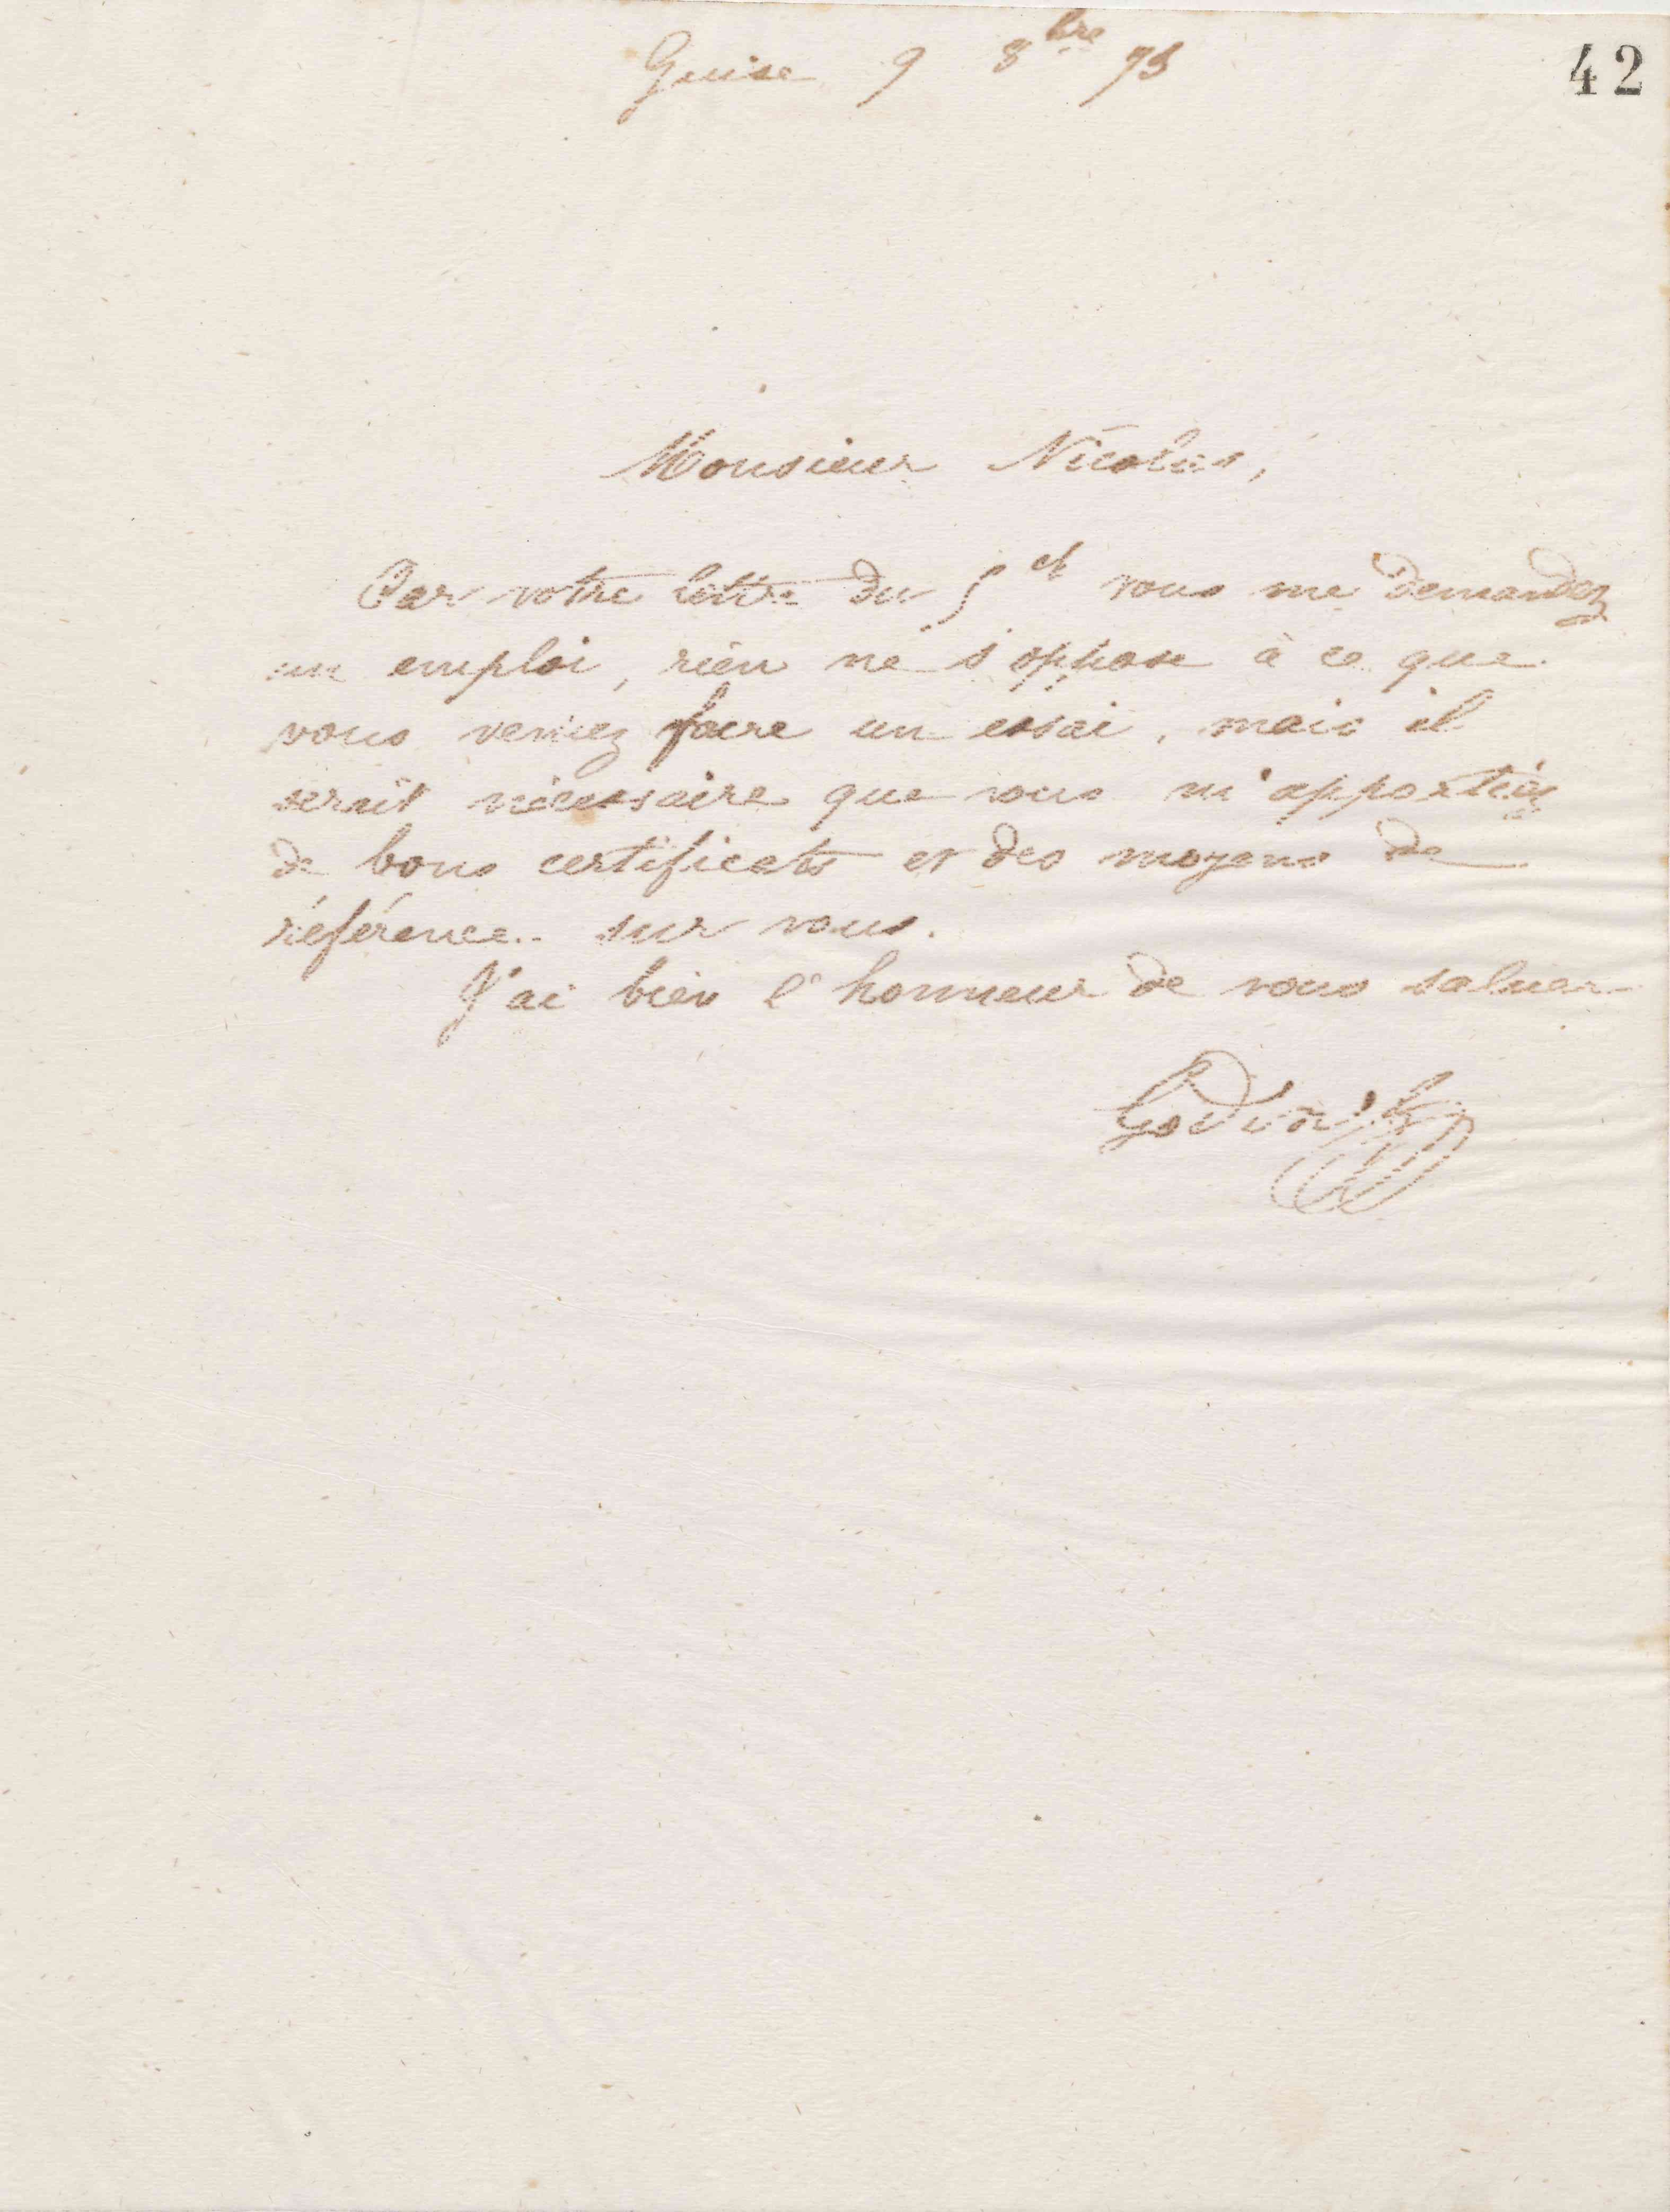 42
Guise 9 8bre 73
Monsieur Nicolas,
Par votre lettre du 5 ct vous me demandez
un emploi, rien ne s'oppose à ce que
vous veniez faire un essai, mais il
serait nécessaire que vous m'apportiez
de bons certificats et des moyens de
référence sur vous.
J'ai bien l'honneur de vous saluer
Godin